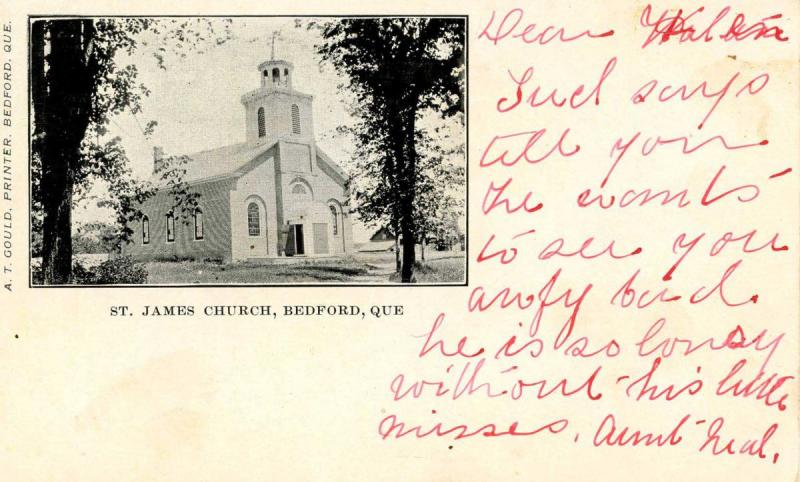 A. T. GOULD, PRINTER, BEDFORD, QUE.
ST. JAMES CHURCH, BEDFORD, QUE
Dear
says
tell you
he wants
to see you
bad
he is so lonesy
without his little
misses. Aunt